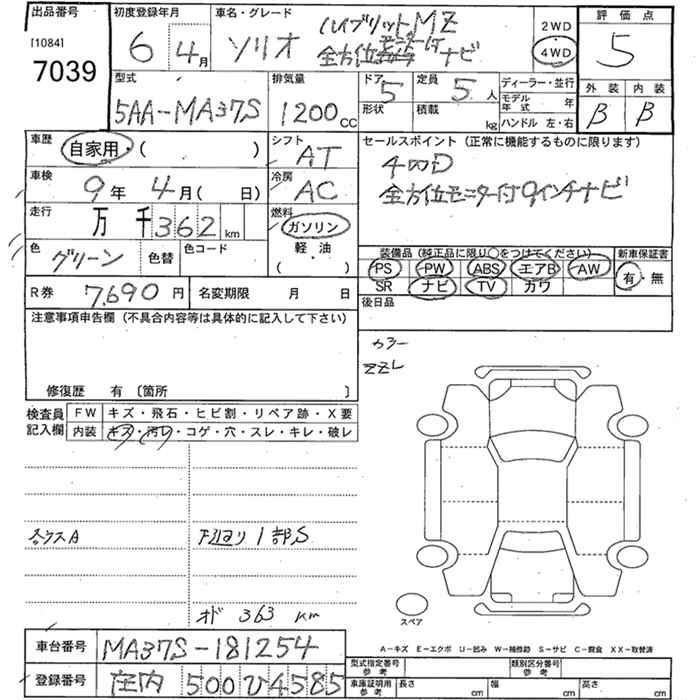 出品番号 初度登録年月 車名・グレード ハイブリットMZ 2WD 評価点
[1084] 6 4月 ソリオ 全方位モニター付ナビ 4WD 5
7039
型式 排気量 ドア 定員 ディーラー・並行 外装 内装
5AA-MA37S 1200cc 5 5人 モデル年式 年 B B
形状 積載 kg ハンドル 左・右
車歴 自家用・( ) シフト AT セールスポイント(正常に機能するものに限ります)
車検 9年 4月( 日) 冷房 AC 4WD
全方位モニター付9インチナビ
走行 万 千 362 km 燃料 ガソリン
色 グリーン 色替 色コード 軽・油 装備品(純正品に限り○をつけてください) 新車保証書
・( ) PS PW ABS エアB AW 有・無
R券 7,690円 名変期限 月 日 SR ナビ TV カワ
注意事項申告欄(不具合内容等は具体的に記入して下さい) 後日品
カラー
ZZL
修復歴 有 〔箇所 〕
検査員記入欄 FW キズ・飛石・ヒビ割・リペア跡・X要
内装 キズ・汚レ・コゲ・穴・スレ・キレ・破レ
下廻り1部S
オド 363 km
スペア
A-キズ E-エクボ U-凹み W-補修跡 S-サビ C-腐食 XX-取替済
車台番号 MA37S-181254
型式指定番号 参考 類別区分番号 参考
登録番号 庄内 500 ひ 4585
車庫証明用 参考 長さ cm 幅 cm 高さ cm